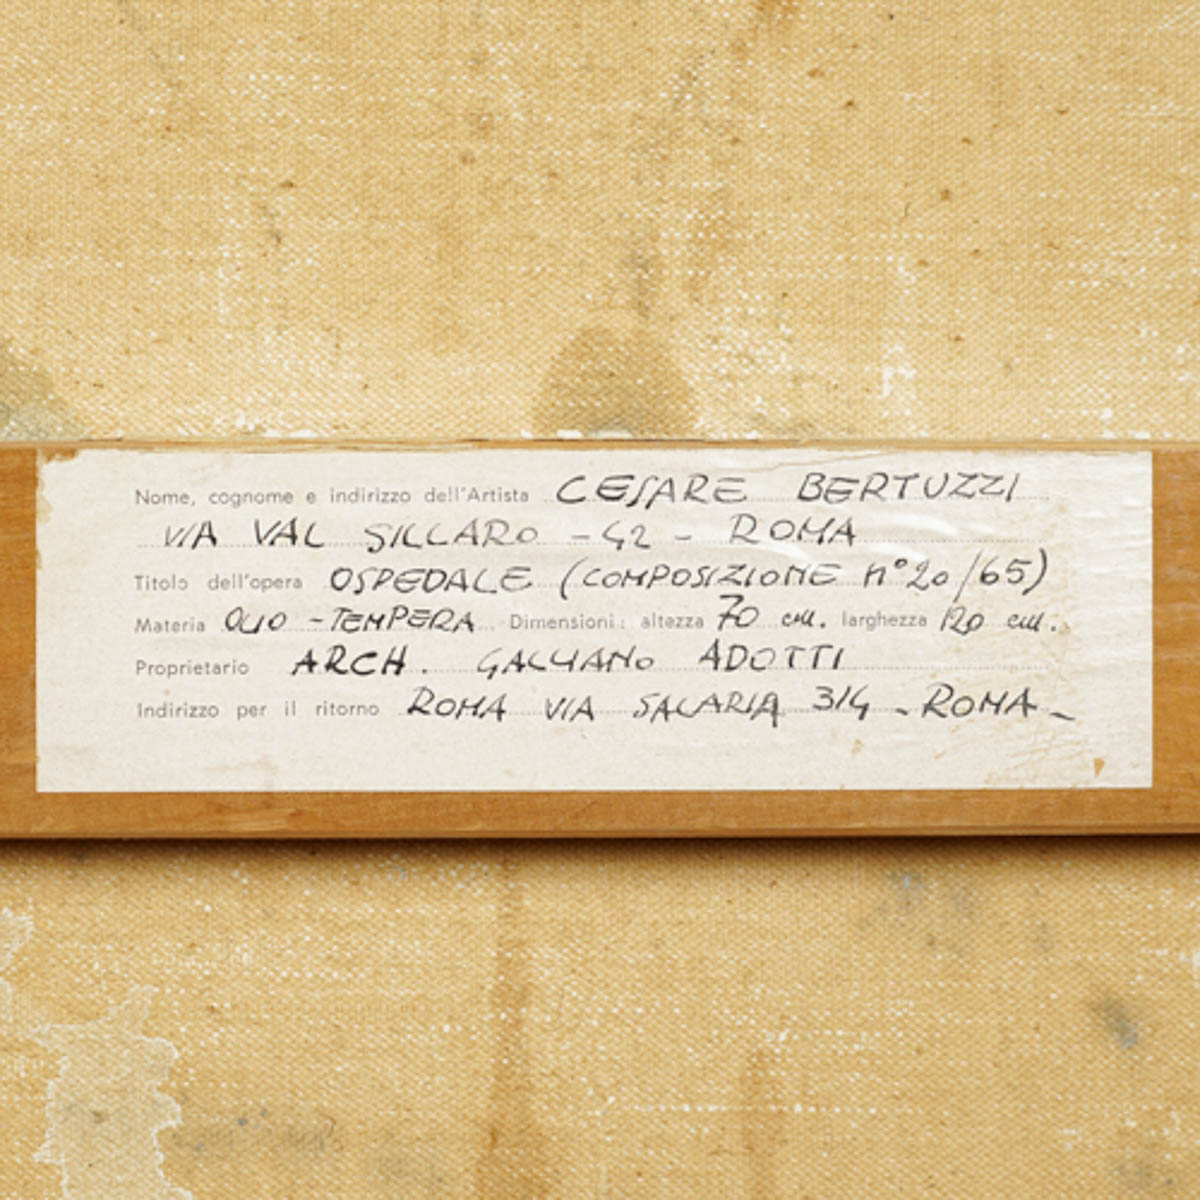 Nome, cognome e indirizzo dell'Artista CESARE BERTUZZI
VIA VAL SILLARO - 42 - ROMA
Titolo dell'opera OSPEDALE (COMPOSIZIONE n° 20/65)
Materia OLIO - TEMPERA Dimensioni: altezza 70 cm. larghezza 120 cm.
Proprietario ARCH. GALVANO ADOTTI
Indirizzo per il ritorno ROMA VIA SALARIA 314 - ROMA -